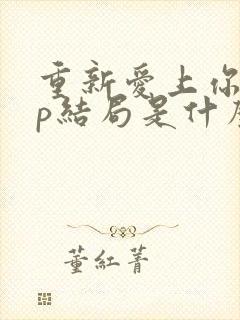 重新愛上你
p結局是什
董紅菁